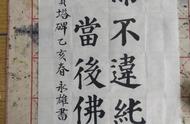 不違
當後佛
塔碑乙亥春永雄書